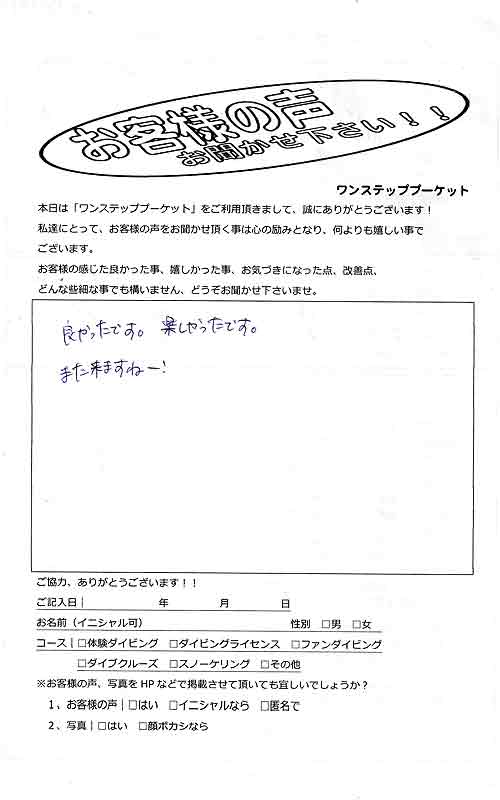 お客様の声
お聞かせ下さい！！
ワンステッププーケット
本日は「ワンステッププーケット」をご利用頂きまして、誠にありがとうございます！
私達にとって、お客様の声をお聞かせ頂く事は心の励みとなり、何よりも嬉しい事で
ございます。
お客様の感じた良かった事、嬉しかった事、お気づきになった点、改善点、
どんな些細な事でも構いません、どうぞお聞かせ下さいませ。
良かったです。楽しかったです。
また来ますねー!
ご協力、ありがとうございます！！
ご記入日| 年 月 日
お名前（イニシャル可） 性別 □男 □女
コース|□体験ダイビング □ダイビングライセンス □ファンダイビング
□ダイブクルーズ □スノーケリング □その他
※お客様の声、写真をHPなどで掲載させて頂いても宜しいでしょうか？
1、お客様の声|□はい □イニシャルなら □匿名で
2、写真|□はい □顔ボカシなら